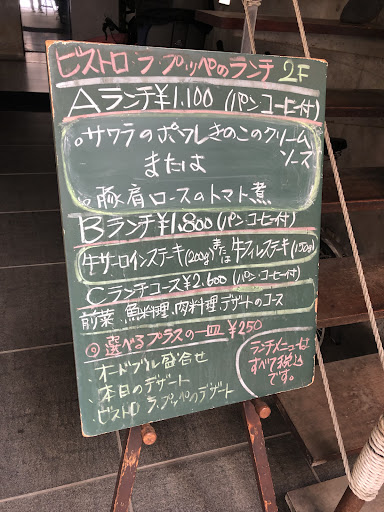 ビストロ ラ・プッペのランチ 2F
Aランチ¥1.100 (パン・コーヒー付)
・サワラのポワレきのこのクリームソース
または
・豚肩ロースのトマト煮
Bランチ¥1.800 (パン・コーヒー付)
牛サーロインステーキ(200g)または牛フィレステーキ(150g)
Cランチコース¥2.600 (パン・コーヒー付)
前菜、魚料理、肉料理、デザートのコース
◎選べるプラスの一皿 ¥250
・オードブル盛合せ
・本日のデザート
・ビストロ ラ・プッペのデザート
ランチメニューは
すべて税込
です。